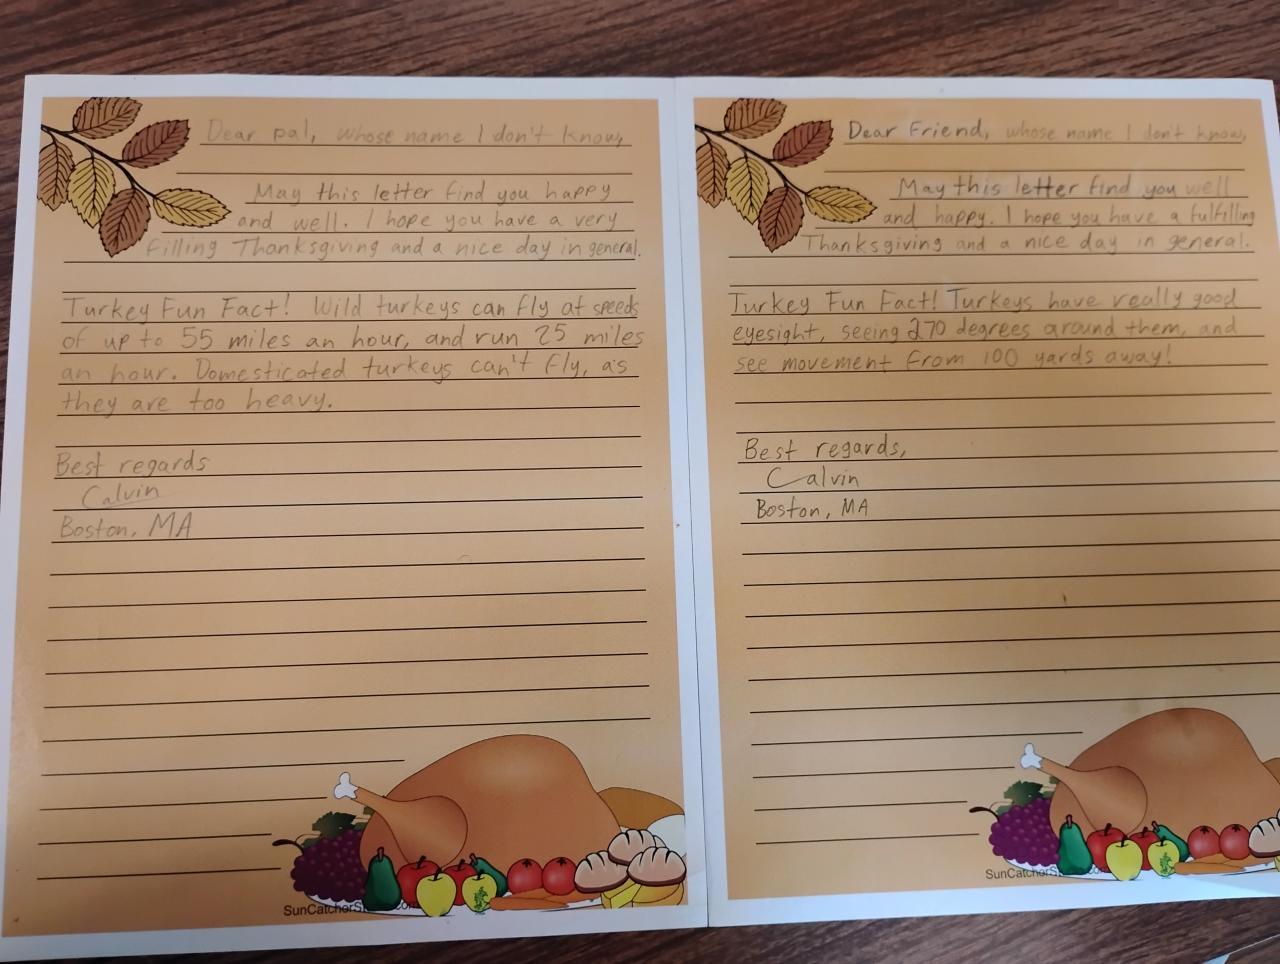 Dear pal, whose name I don't know,
May this letter find you happy
and well. I hope you have a very
filling Thanksgiving and a nice day in general.
Turkey Fun Fact! Wild turkeys can fly at speeds
of up to 55 miles an hour, and run 25 miles
an hour. Domesticated turkeys can't fly, as
they are too heavy.
Best regards
Calvin
Boston, MA
Dear Friend, whose name I don't know,
May this letter find you well
and happy. I hope you have a fulfilling
Thanksgiving and a nice day in general.
Turkey Fun Fact! Turkeys have really good
eyesight, seeing 270 degrees around them, and
see movement from 100 yards away!
Best regards,
Calvin
Boston, MA